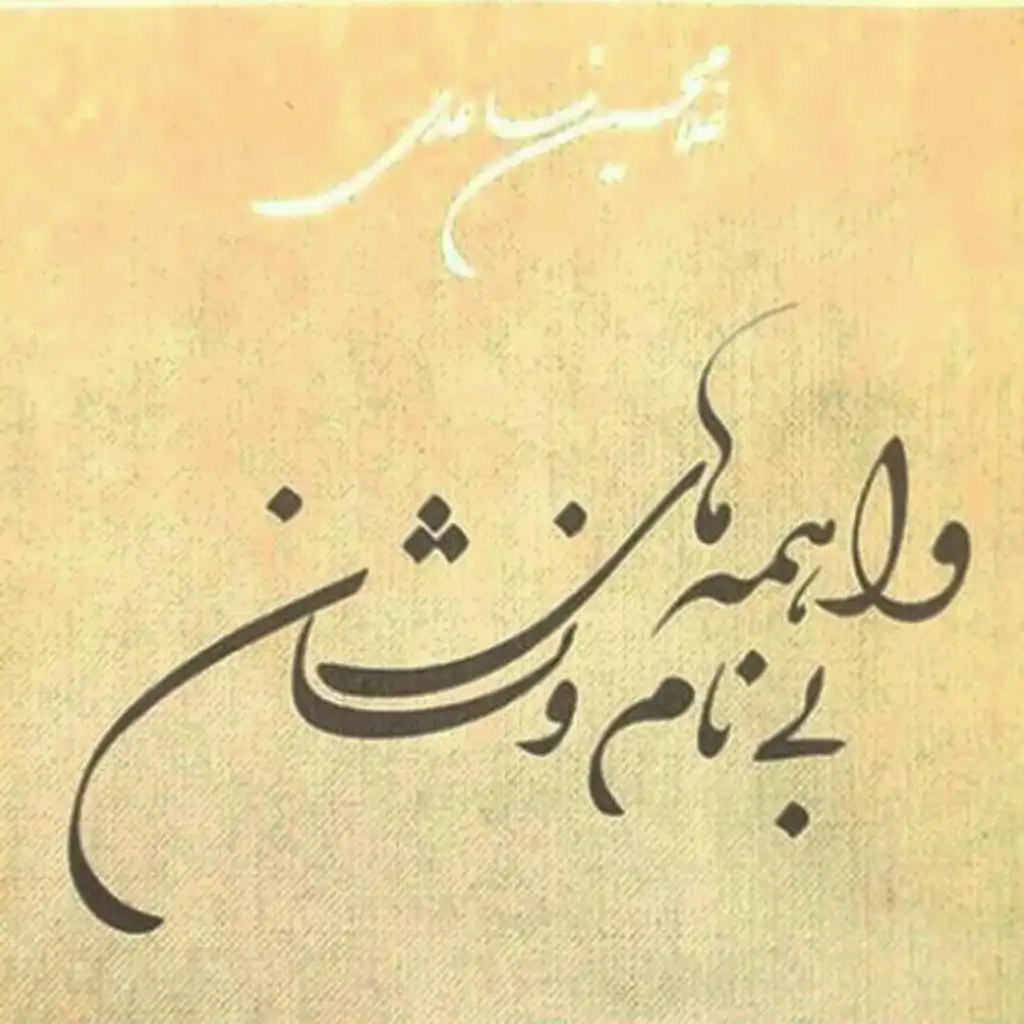 غلامحسین ساعدی
واهمه های
بی نام و نشان